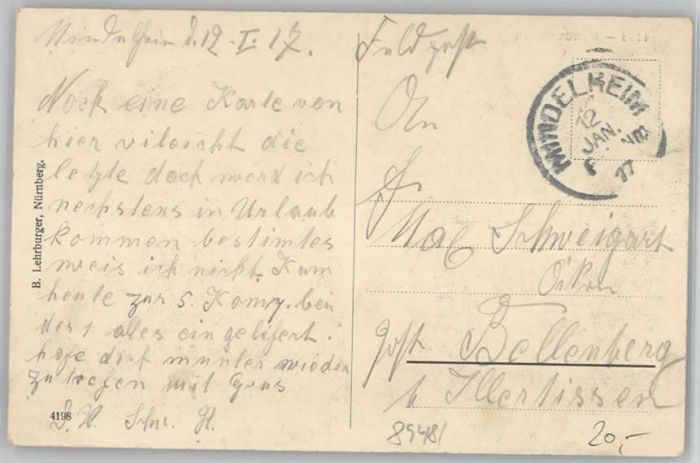 Mindelheim d. 12-I. 17.
Noch eine Karte von
hier vileicht die
letzte doch werd ich
nechstens in Urlaub
kommen bestimtes
weis ich nicht. Kam
heute zur 5. Komp. bei
der 1 alles eingelifert.
hofe dich munter wieder
zu trefen mit Grus
B. Lehrburger, Nürnberg.
4198
Feldpost
An
MINDELHEIM
12
JAN.
17
Schweigart
Öikon
Post Bellenberg
b Illertissen
89481
20,-